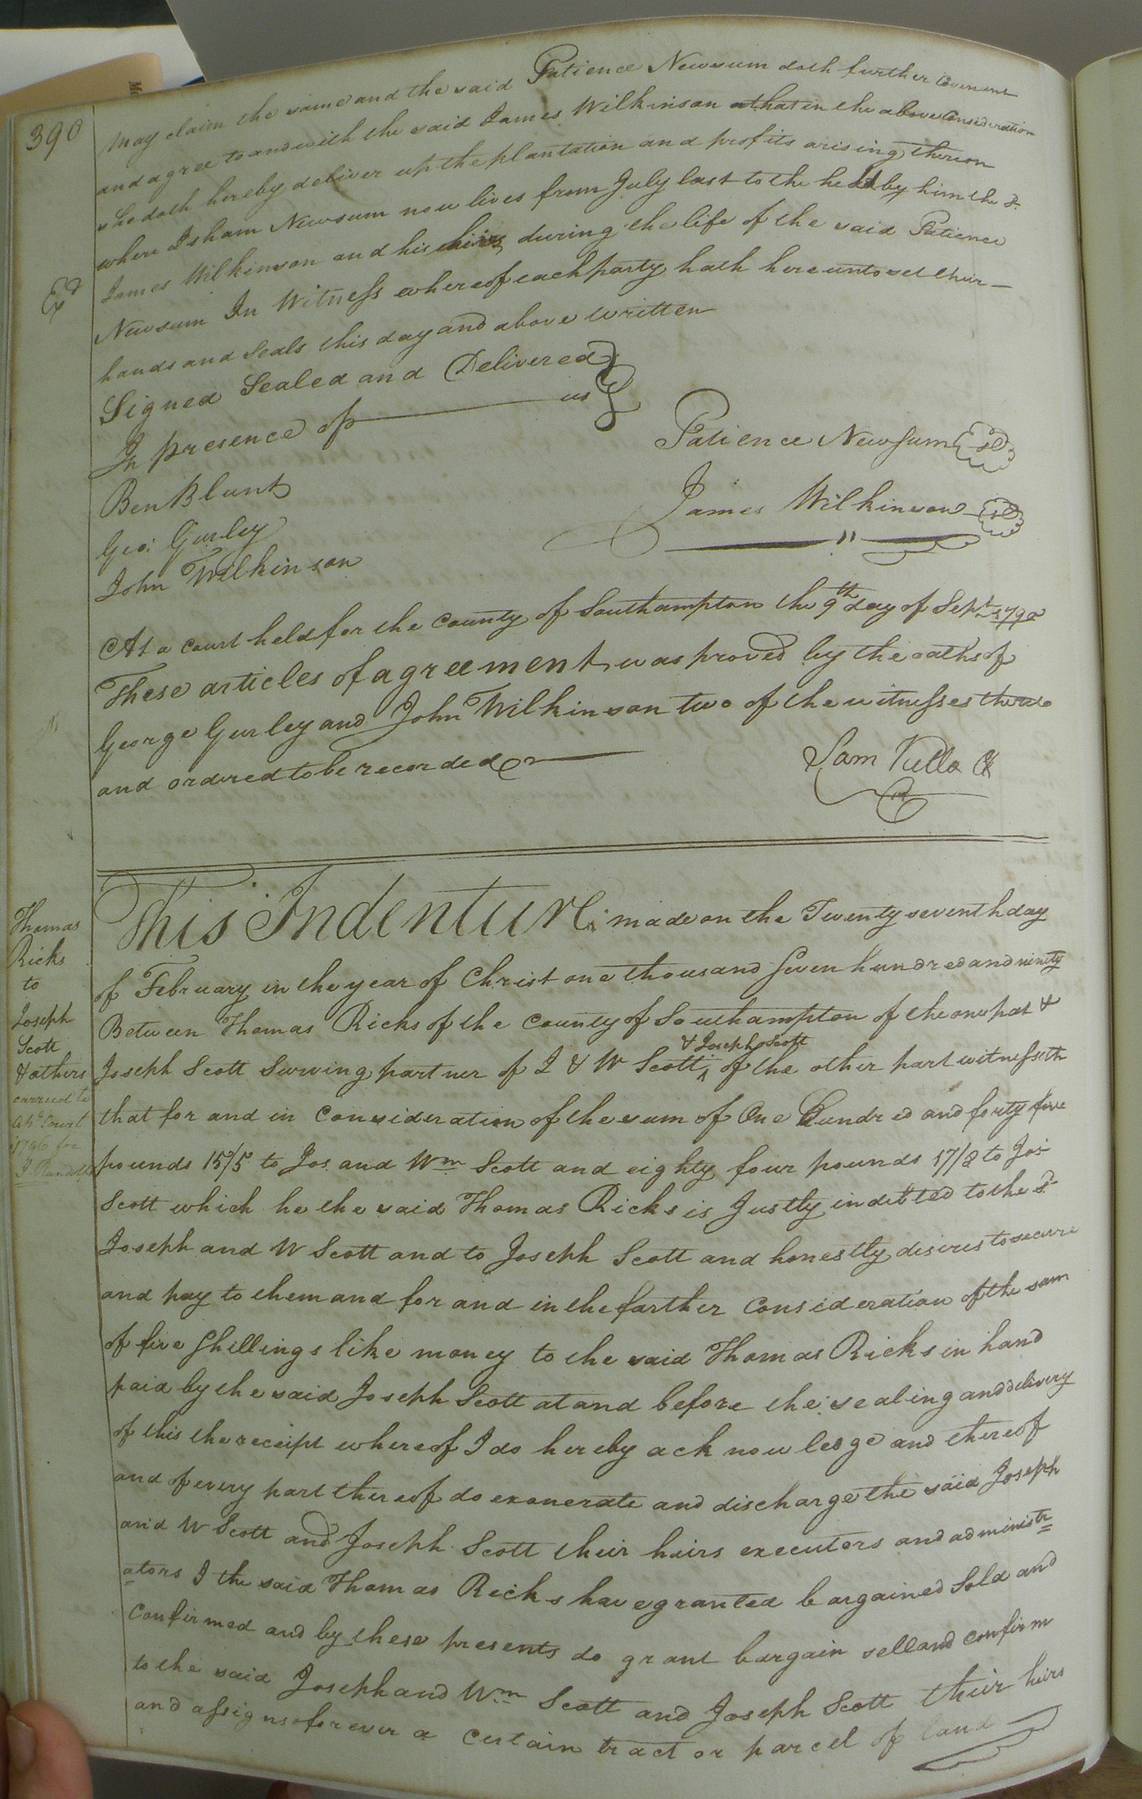 390
may claim the same and the said Patience Newsum doth further Covenant
and agree to and with the said James Wilkinson that in the above Consideration
she doth hereby deliver up the plantation and profits arising thereon
where Isham Newsum now lives from July last to the held by him the sd.
James Wilkinson and his heirs during the life of the said Patience
Exd
Newsum In Witness whereof each party hath hereunto set their
hands and Seals this day and above written
Signed Sealed and Delivered
In presence of us
Patience Newsum
Ben Blunt
James Wilkinson
Geo: Gurley
John Wilkinson
At a court held for the county of Southampton the 9th day of Sept. 1790
These articles of agreement was proved by the oaths of
George Gurley and John Wilkinson two of the witnesses thereto
and ordered to be recorded
Sam Kello Ck
Thomas
Ricks
to
Joseph
Scott
& others
carried to
Court
1796 for
This Indenture made on the Twenty seventh day
of February in the year of Christ one thousand Seven hundred and ninety
Between Thomas Ricks of the County of Southampton of the one part &
& Joseph Scott
Joseph Scott Surving partner of J & W Scott ^ of the other part witnesseth
that for and in Consideration of the sum of One Hundred and forty five
pounds 15/5 to Jos. and Wm Scott and eighty four pounds 17/8 to Jos:
Scott which he the said Thomas Ricks is Justly indebted to the sd.
Joseph and W Scott and to Joseph Scott and honestly desires to secure
and pay to them and for and in the farther Consideration of the sum
of five Shillings like money to the said Thomas Ricks in hand
paid by the said Joseph Scott at and before the sealing and delivery
of this the receipt whereof I do hereby acknowledge and thereof
and of every part thereof do exonerate and discharge the said Joseph
and W Scott and Joseph Scott their hairs executors and administr=
ators I the said Thomas Ricks have granted bargained Sold and
Confirmed and by these presents do grant bargain sell and confirm
to the said Joseph and Wm Scott and Joseph Scott their hairs
and assigns forever a Certain tract or parcel of land